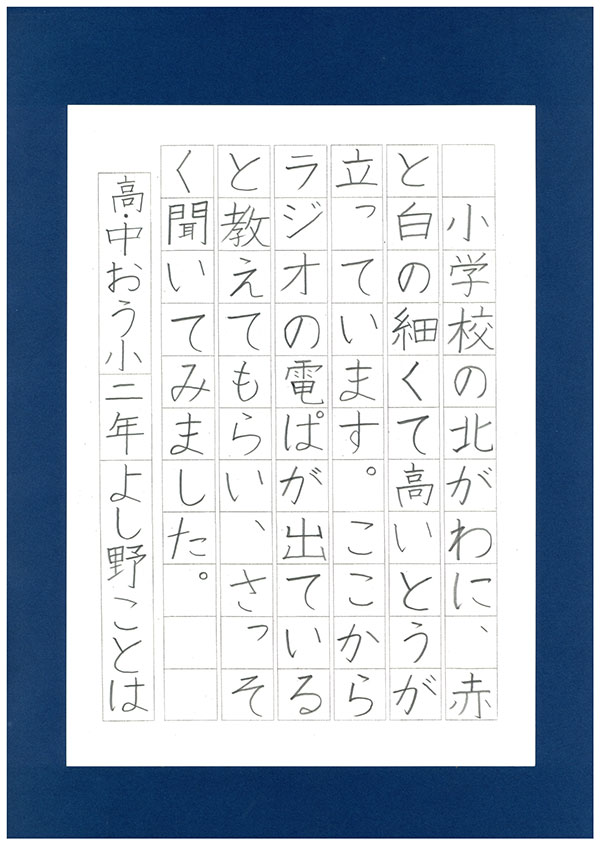 小学校の北がわに、赤
と白の細くて高いとうが
立っています。ここから
ラジオの電ぱが出ている
と教えてもらい、さっそ
く聞いてみました。
高・中おう小二年よし野ことは